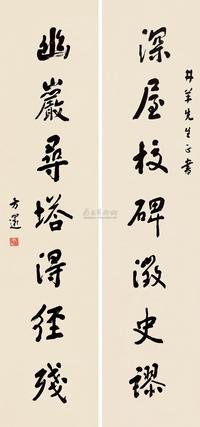 井羊先生正書
深屋校碑澂史謬
幽巖尋塔得径殘
方還